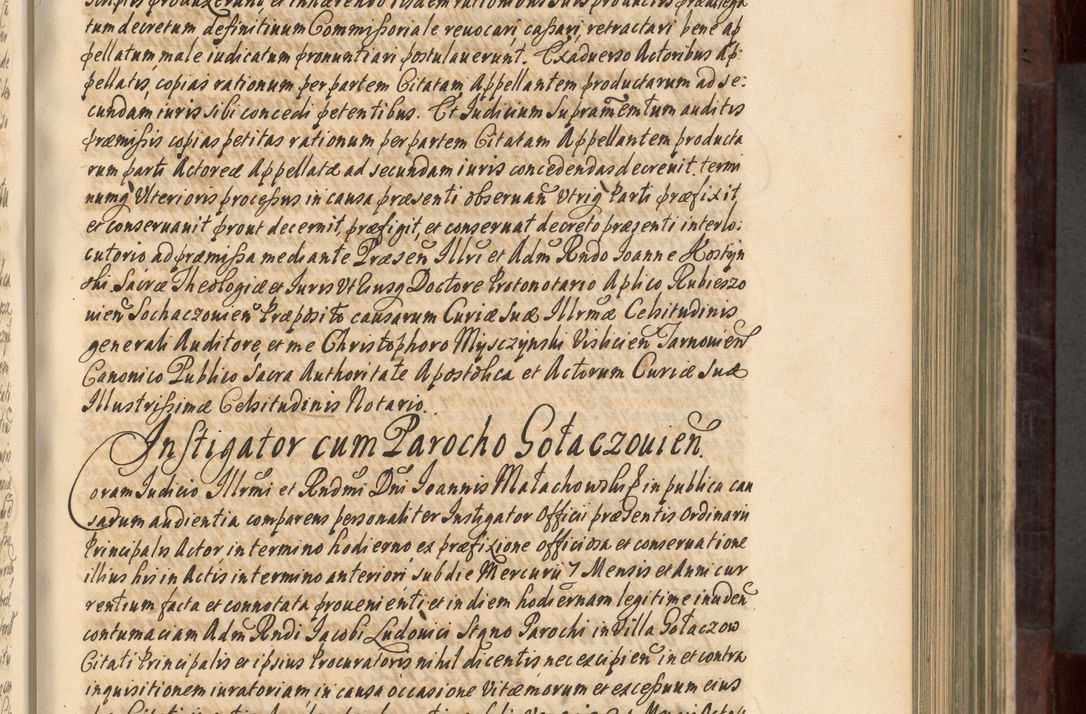 tum decretum definitiuum Commissoriale reuocari, cassari, retractari bene ap
pellatum male iudicatum pronuntiari postulauerunt. Exaduerso Actoribus Ap:
pellatis, copias rationum per partem Citatam Appellantem productarum ad se:
cundam iuris sibi concedi petentibus. Et Iudicium Supramemtum auditis
præmissis copias petitas rationum per partem Citatam Appellantem producta
rum parti Actoreæ Appellatæ ad secundam iuris concedendas decreuit, termi
numq Vlterioris processus in causa præsenti obseruan Vtriq Parti præfixit,
et conseruauit prout decernit, præfigit, et conseruat decreto præsenti interlo:
cutorio ad præmissa mediante Præsen Illri et Adm Rndo Ioanne Hostyn
ski Sacræ Theologiæ et Iuris Vtriusq Doctore Protonotario Aplico Rubieszo
uien Sochaczouien Præposito causarum Curiæ Suæ Illrmæ Celsitudinis
generali Auditore, et me Christophoro Mysczynski Vislicien Tarnouien
Canonico Publico Sacra Authoritate Apostolica et Actorum Curiæ Suæ
Illustrissimæ Celsitudinis Notario.
Instigator cum Parocho Gołaczouien.
Coram Iudicio Illrmi et Rndmi Dni Ioannis Małachowski in publica cau
sarum audientia comparens personaliter Instigator Officii præsentis Ordinarii
Principalis Actor in termino hodierno ex præfixione officiosa et conseruatione
illius his in Actis in termino anteriori sub die Mercurii 7 Mensis et Anni cur
rentium facta et connotata prouenienti et in diem hodiernam legitime inuden
contumaciam Adm Rndi Iacobi Ludouici Stgno Parochi in Villa Gołaczow
Citati Principalis et ipsius Procuratoris nihil dicentis nec excipien in et contra
inquisitionem iuratoriam in causa occasione Vitæ morum et excessuum eius